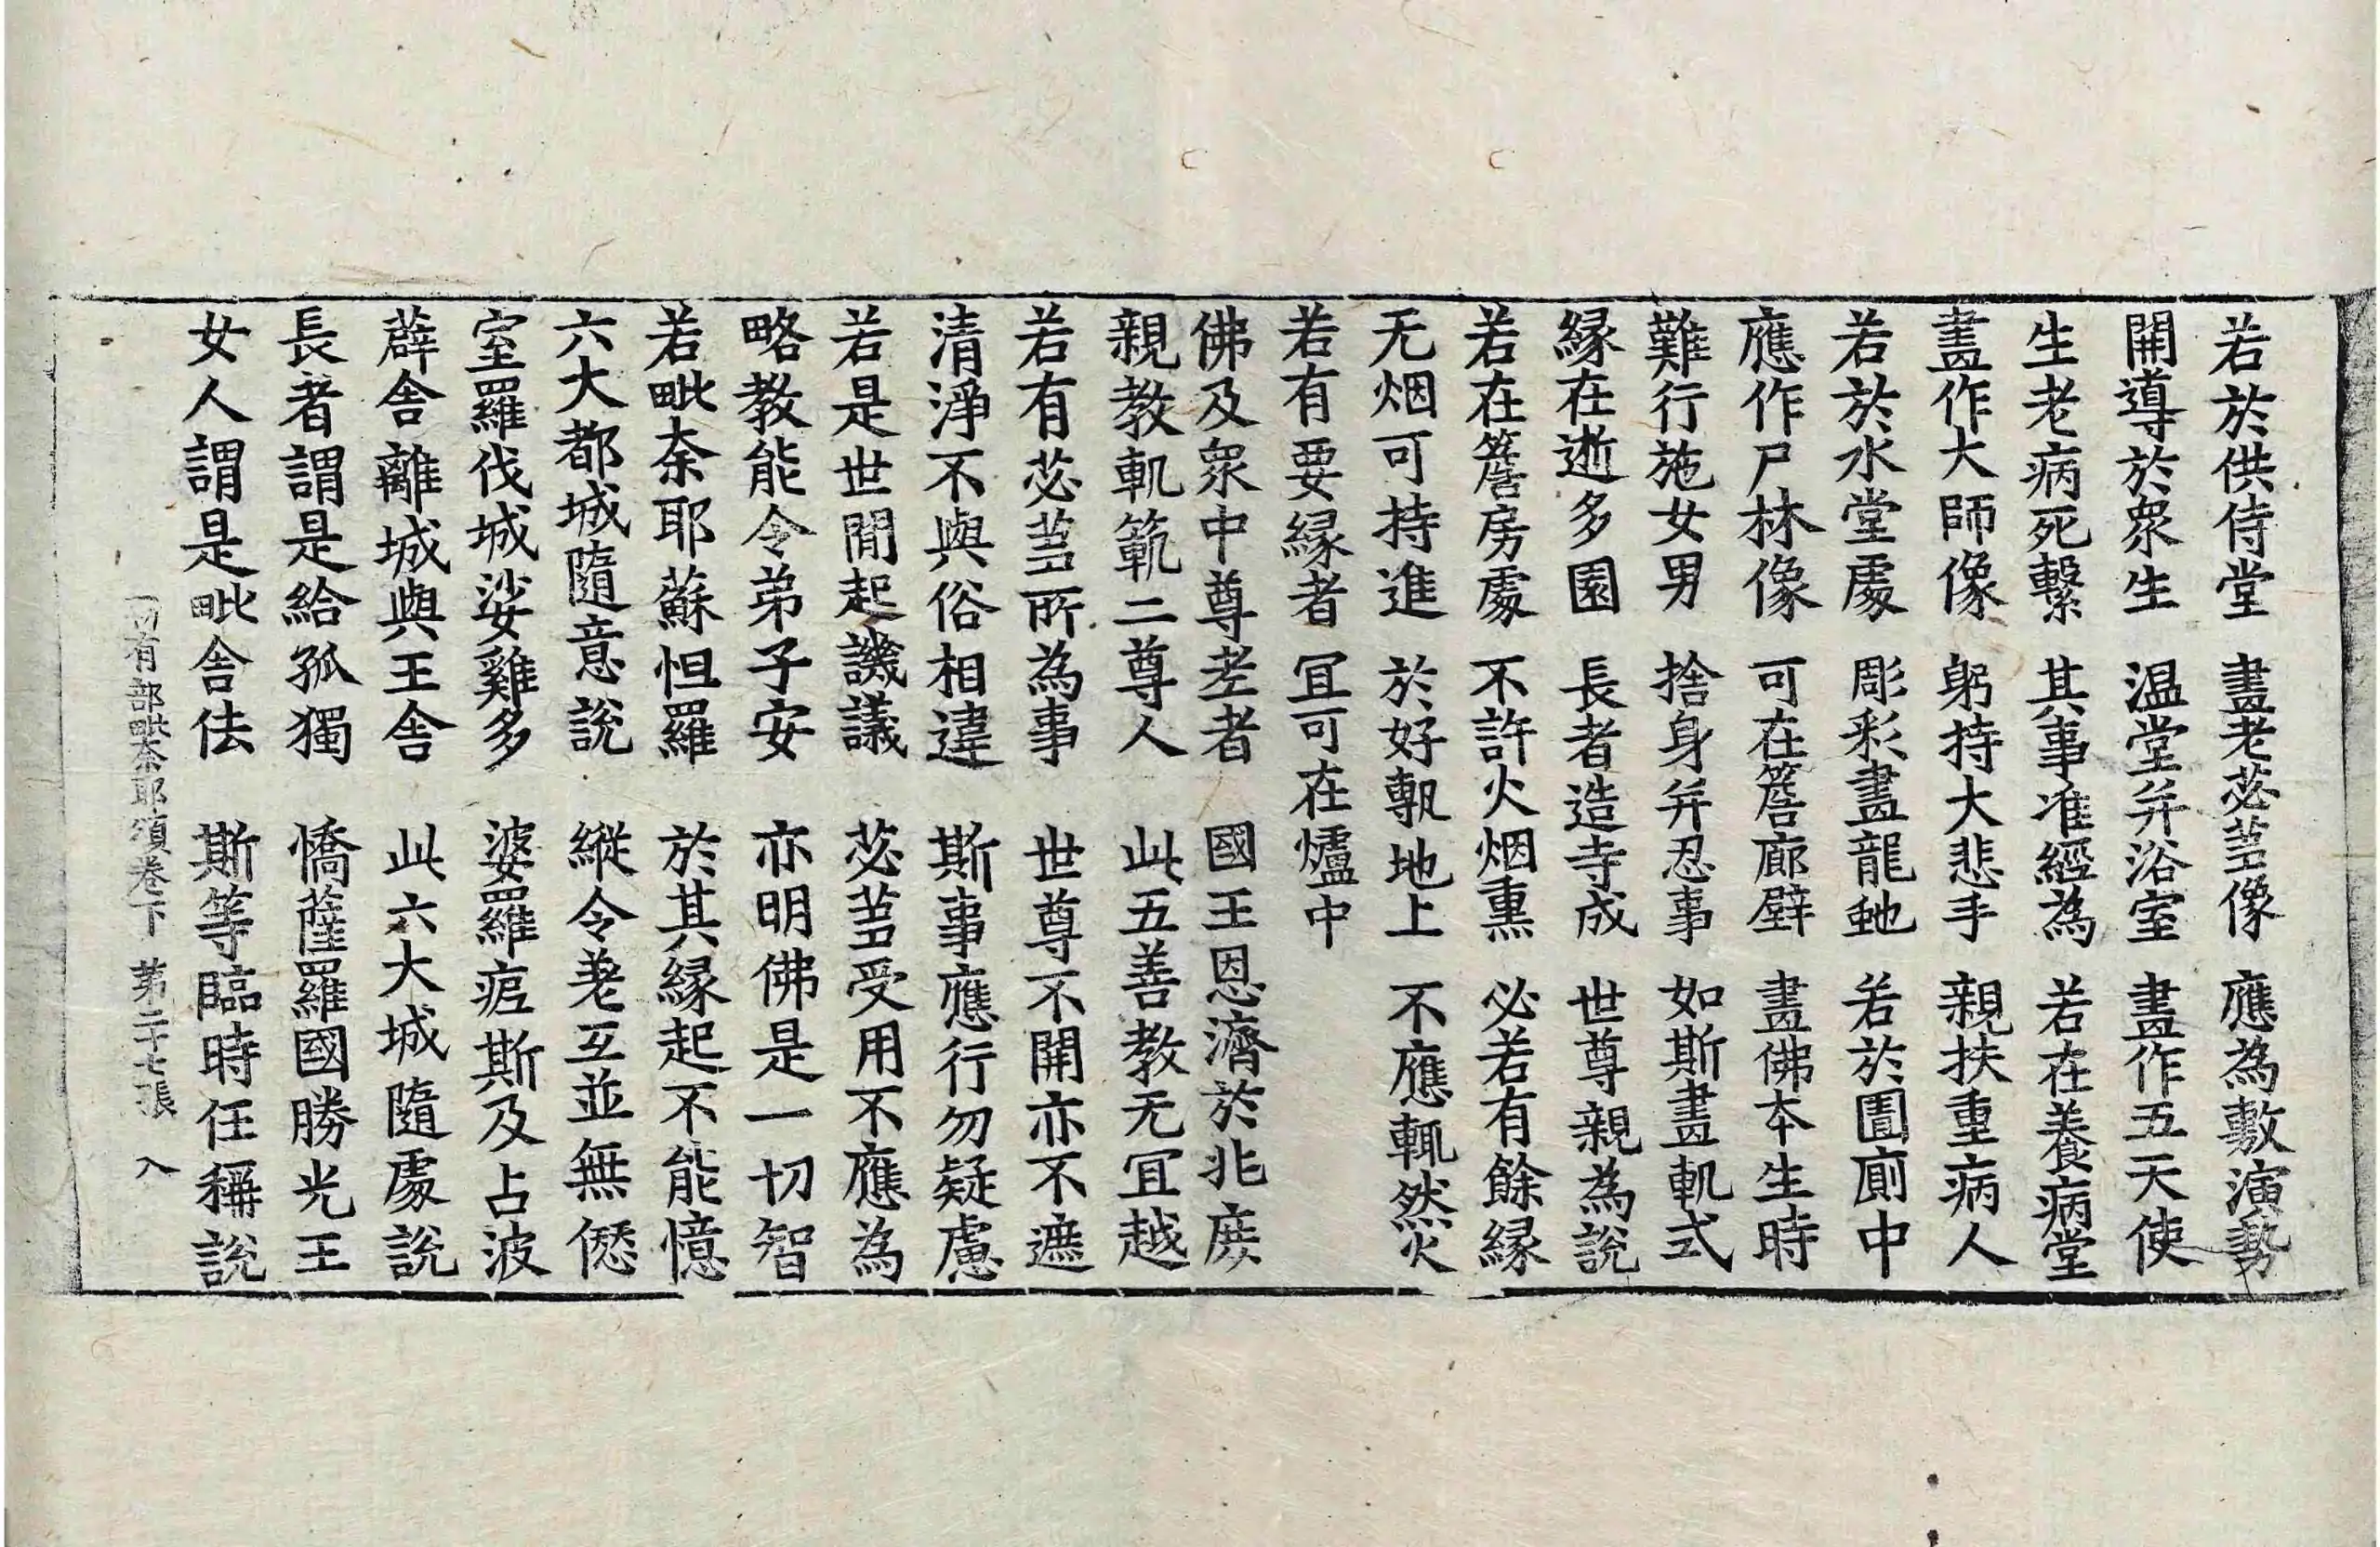 若於供侍堂 畫老苾芻像 應為敷演勢
開導於衆生 温堂并浴室 畫作五天使
生老病死繫 其事准經為 若在養病堂
畫作大師像 躬持大悲手 親扶重病人
若於水堂處 彫彩畫龍虵 若於圊廁中
應作尸林像 可在簷廊壁 畫佛本生時
難行施女男 捨身并忍事 如斯畫軌式
縁在逝多園 長者造寺成 世尊親為說
若在簷房處 不許火烟熏 必若有餘縁
无烟可持進 於好塼地上 不應輒然火
若有要縁者 冝可在爐中
佛及衆中尊老者 國王恩濟於兆庶
親教軌範二尊人 此五善教无冝越
若有苾芻所為事 世尊不開亦不遮
清淨不與俗相違 斯事應行勿疑慮
若是世間起譏議 苾芻受用不應為
略教能令弟子安 亦明佛是一切智
若毗奈耶蘇怛羅 於其縁起不能憶
六大都城隨意說 縱令差互並無愆
室羅伐城娑雞多 婆羅痆斯及占波
薜舍離城與王舍 此六大城隨處說
長者謂是給孤獨 憍薩羅國勝光王
女人謂是毗舍佉 斯等臨時任稱說
一切有部毗奈耶頌卷下 苐二十七張 入